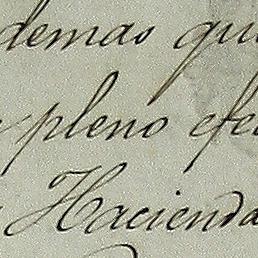 demas qu
pleno efe
Hacienda